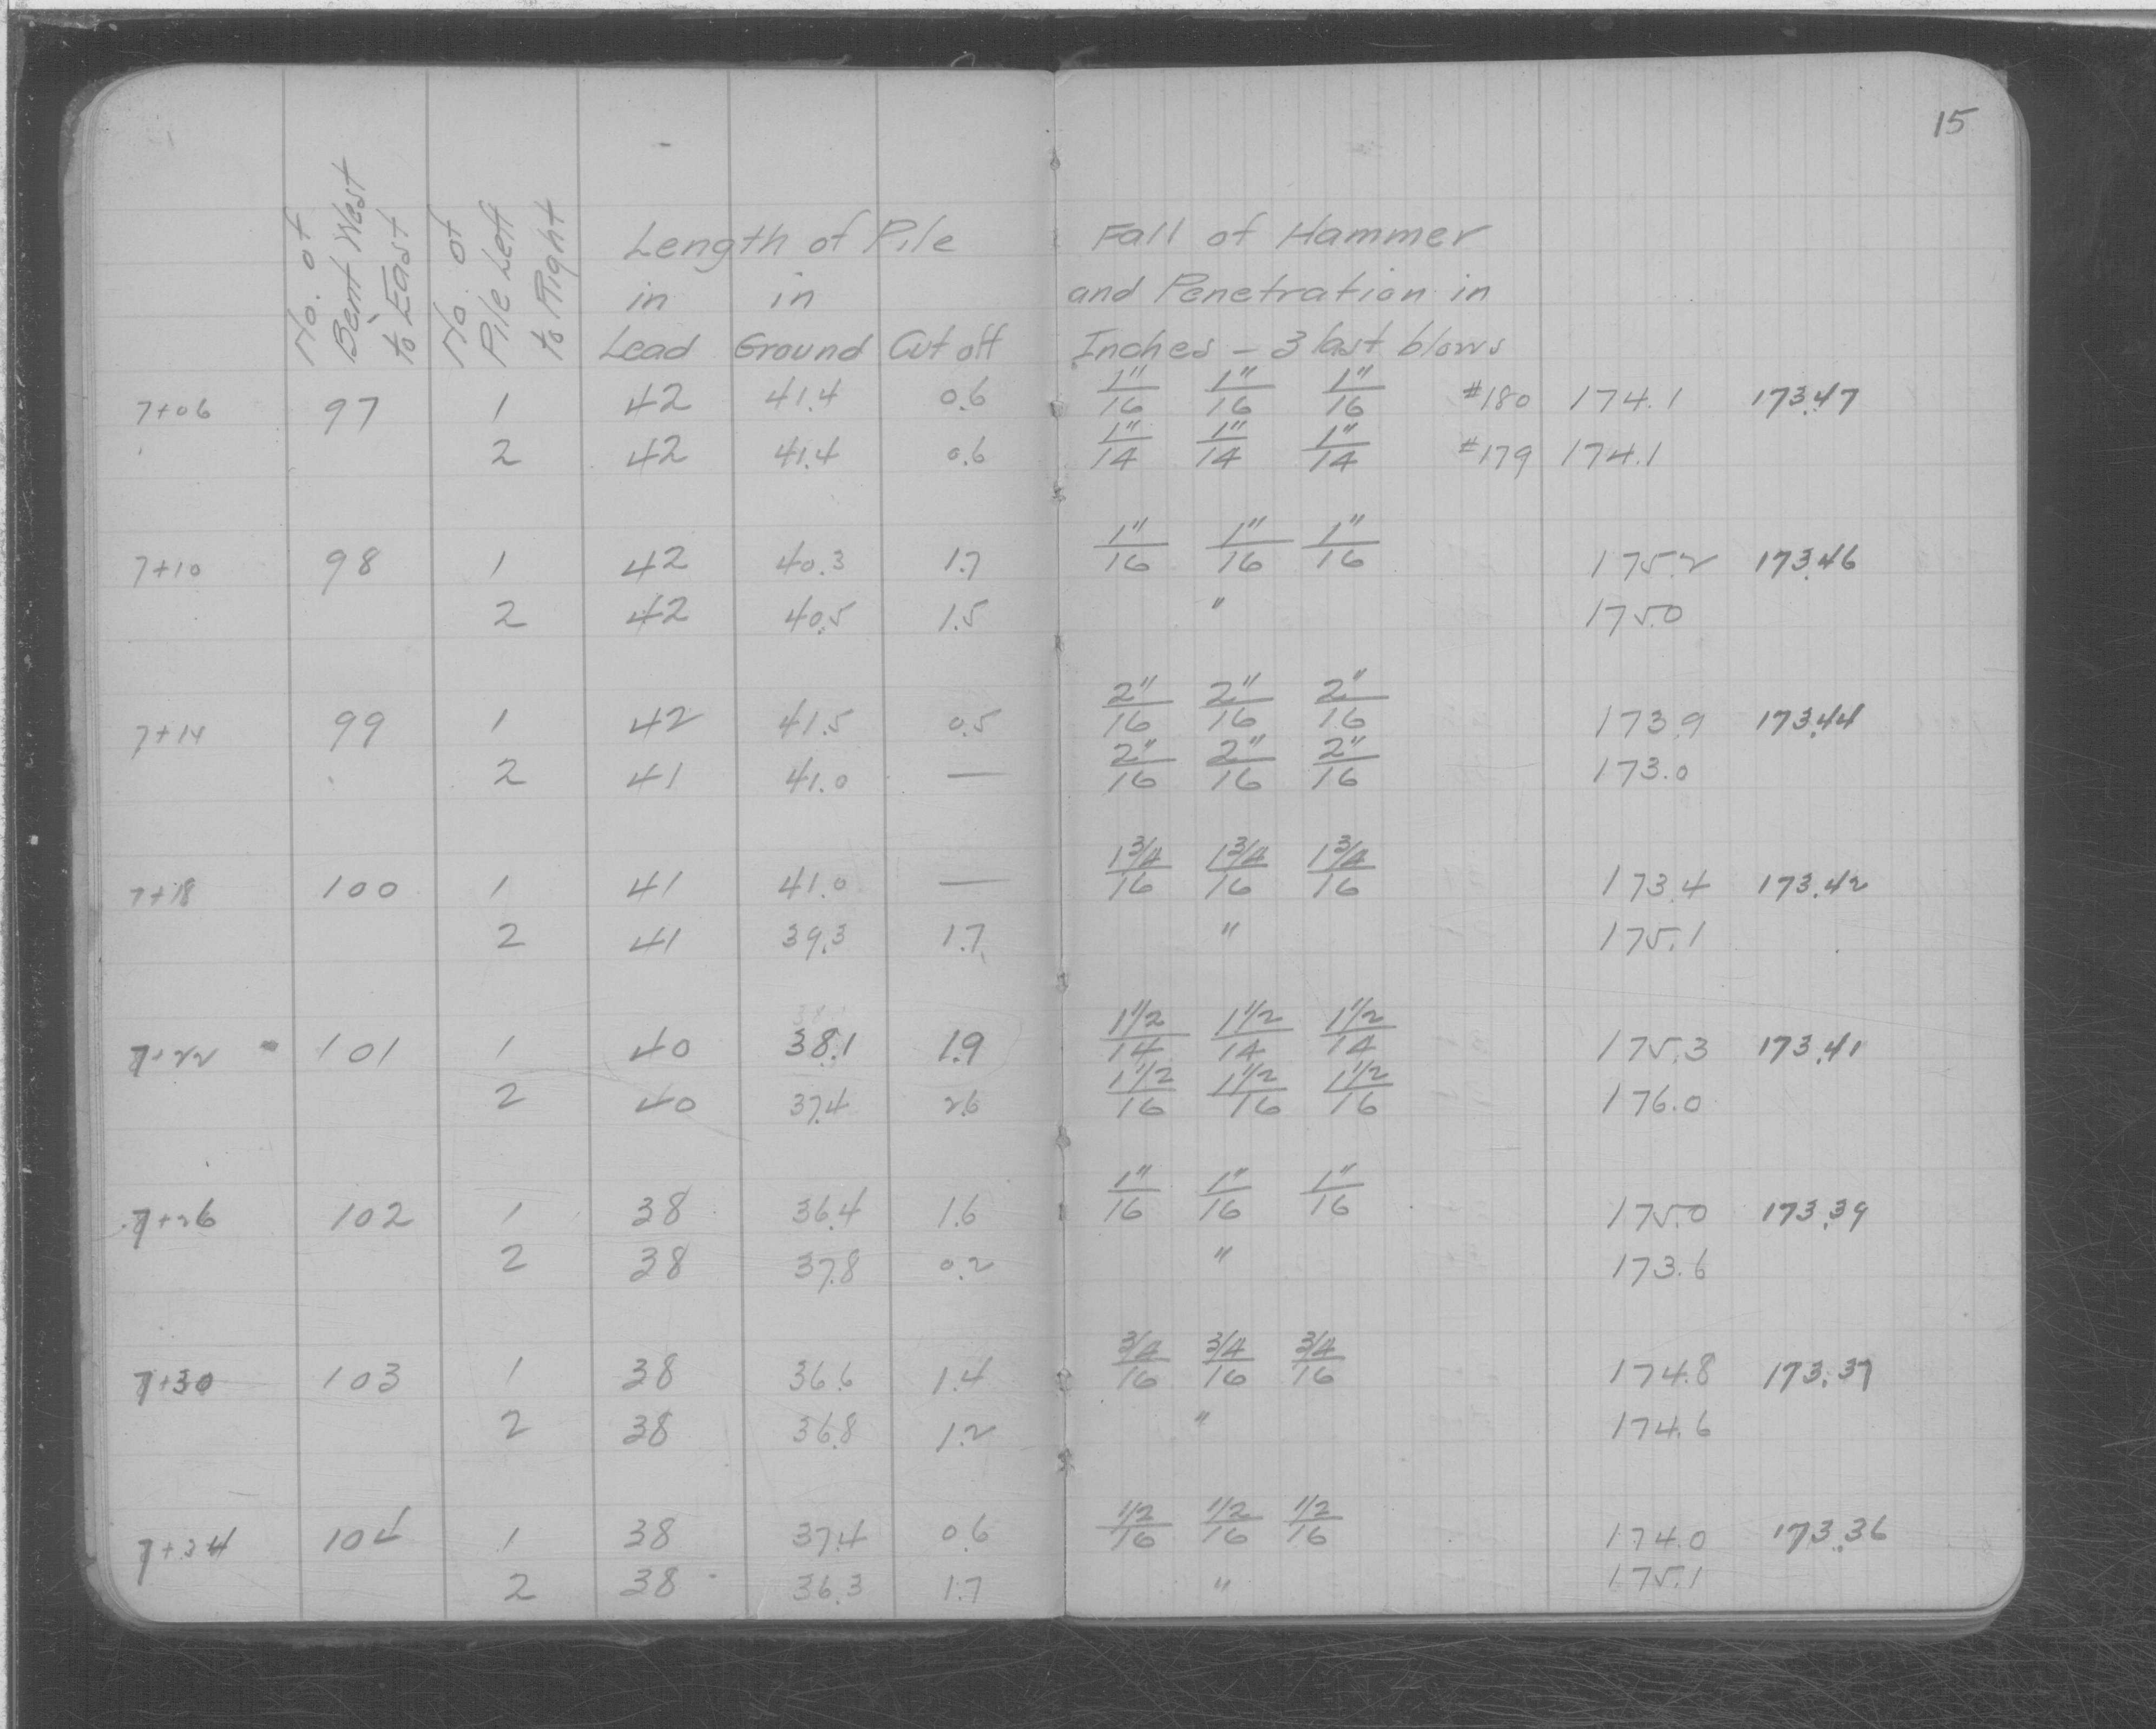 15
No. of Bent West to East
No. of Pile Left to Right
Length of Pile
in Lead in Ground Cut off
Fall of Hammer
and Penetration in
Inches - 3 last blows
7+06 97 1 42 41.4 0.6 1"/16 1"/16 1"/16 #180 174.1 173.47
2 42 41.4 0.6 1"/14 1"/14 1"/14 #179 174.1
7+10 98 1 42 40.3 1.7 1"/16 1"/16 1"/16 175.2 173.46
2 42 40.5 1.5 " 175.0
7+14 99 1 42 41.5 0.5 2"/16 2"/16 2"/16 173.9 173.44
2 41 41.0 — 2"/16 2"/16 2"/16 173.0
7+18 100 1 41 41.0 — 1 3/4/16 1 3/4/16 1 3/4/16 173.4 173.42
2 41 39.3 1.7 " 175.1
7+22 101 1 40 38.1 1.9 1 1/2/14 1 1/2/14 1 1/2/14 175.3 173.41
2 40 37.4 2.6 1 1/2/16 1 1/2/16 1 1/2/16 176.0
7+26 102 1 38 36.4 1.6 1"/16 1"/16 1"/16 175.0 173.39
2 38 37.8 0.2 " 173.6
7+30 103 1 38 36.6 1.4 3/4/16 3/4/16 3/4/16 174.8 173.37
2 38 36.8 1.2 " 174.6
7+34 104 1 38 37.4 0.6 1/2/16 1/2/16 1/2/16 174.0 173.36
2 38 36.3 1.7 " 175.1